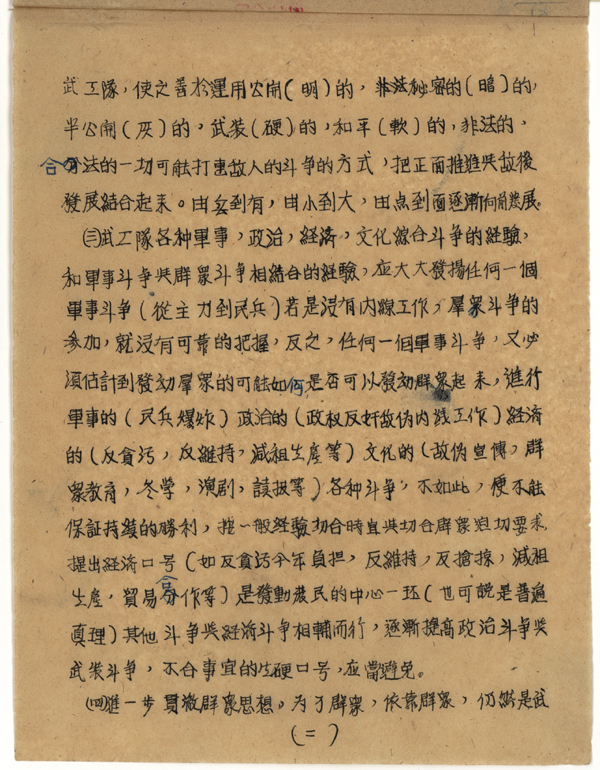 武工隊，使之善於運用公開（明）的，非法秘密的（暗）的，
半公開（灰）的，武装（硬）的，和平（軟）的，非法的，
合法的一切可能打击敌人的斗争的方式，把正面推進與敌後
發展結合起来。由無到有，由小到大，由点到面逐漸向前發展。
㈢武工隊各种軍事，政治，經済，文化綜合斗争的經驗，
和軍事斗争與群眾斗争相結合的經驗，应大大發揚任何一個
軍事斗争（從主力到民兵）若是没有内線工作，羣眾斗争的
参加，就没有可靠的把握，反之，任何一個軍事斗争，又必
須估計到發动羣眾的可能如何，是否可以發动群眾起来，進行
軍事的（民兵爆炸）政治的（政权反奸敌伪内线工作）經済
的（反貪污，反維持，減租生產等）文化的（敌伪宣傳，群
眾教育，冬學，演剧，談报等）各种斗争，不如此，便不能
保証持续的勝利，按一般經驗切合時宜與切合群眾迫切要求，
提出經済口号（如反貪污合理負担，反維持，反搶掠，減租
生産，貿易合作等）是發動農民的中心一环（也可說是普遍
真理）其他斗争與經済斗争相輔而行，逐漸提高政治斗争與
武装斗争，不合事宜的生硬口号，应當避免。
㈣進一步貫澈群眾思想。为了群眾，依靠群眾，仍然是武
（二）